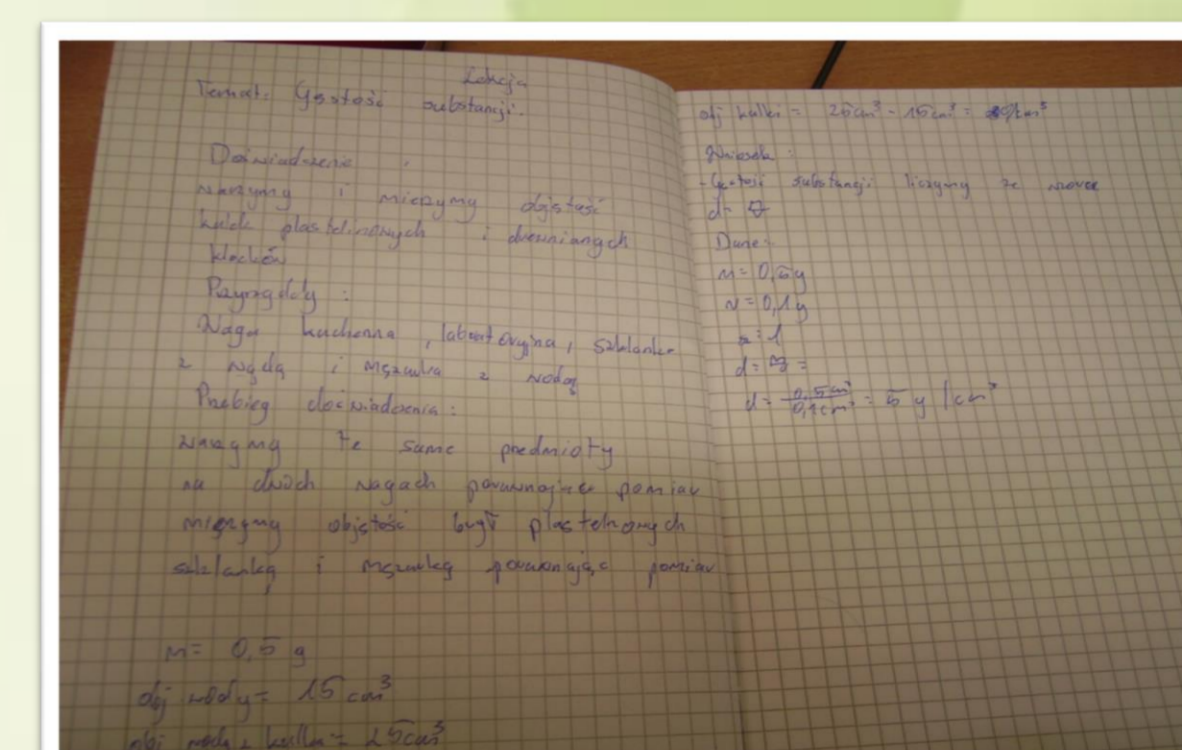 Lekcja
Temat: Gęstość substancji.
Doświadczenie :
ważymy i mierzymy objętość
kulek plastelinowych i drewnianych
klocków
Przyrządy :
Waga kuchenna, laboratoryjna, szklanka
z wodą i menzurka z wodą
Przebieg doświadczenia:
ważymy te same przedmioty
na dwóch wagach porównując pomiar
mierzymy objętość brył plastelinowych
szklanką i menzurką porównując pomiar
m= 0,5 g
obj wody= 15 cm³
obj wody z kulką= 25cm³
obj kulki = 25cm³ - 15cm³ =
Wniosek :
-Gęstość substancji liczymy ze wzoru
d=
Dane:
m= 0,5g
V= 0,1g
d=
d= 0,5cm³ / 0,1cm³ = 5 g /cm³